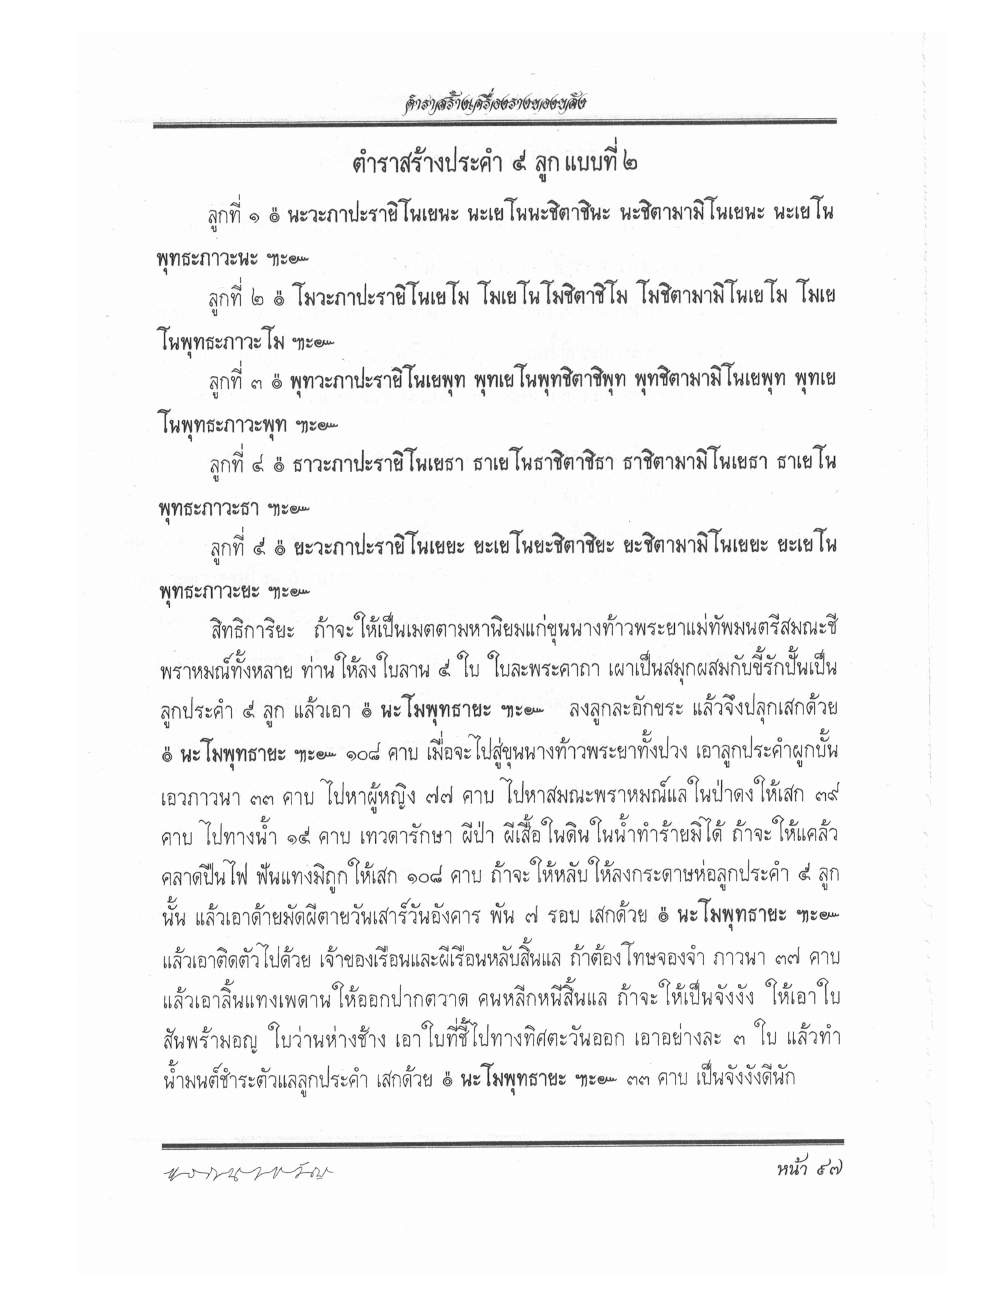 ตำราสร้างเครื่องรางของขลัง
ตำราสร้างประคำ ๕ ลูก แบบที่ ๒
ลูกที่ ๑ ๏ นะวะภาปะรายิโนเยนะ นะเยโนนะชิตาชินะ นะชิตามามิโนเยนะ นะเยโน
พุทธะภาวะนะ ฯะ๛
ลูกที่ ๒ ๏ โมวะภาปะรายิโนเยโม โมเยโนโมชิตาชิโม โมชิตามามิโนเยโม โมเย
โนพุทธะภาวะโม ฯะ๛
ลูกที่ ๓ ๏ พุทวะภาปะรายิโนเยพุท พุทเยโนพุทชิตาชิพุท พุทชิตามามิโนเยพุท พุทเย
โนพุทธะภาวะพุท ฯะ๛
ลูกที่ ๔ ๏ ธาวะภาปะรายิโนเยธา ธาเยโนธาชิตาชิธา ธาชิตามามิโนเยธา ธาเยโน
พุทธะภาวะธา ฯะ๛
ลูกที่ ๕ ๏ ยะวะภาปะรายิโนเยยะ ยะเยโนยะชิตาชิยะ ยะชิตามามิโนเยยะ ยะเยโน
พุทธะภาวะยะ ฯะ๛
สิทธิการิยะ ถ้าจะให้เป็นเมตตามหานิยมแก่ขุนนางท้าวพระยาแม่ทัพมนตรีสมณะชี
พราหมณ์ทั้งหลาย ท่านให้ลงใบลาน ๕ ใบ ใบละพระคาถา เผาเป็นสมุกผสมกับขี้รักปั้นเป็น
ลูกประคำ ๕ ลูก แล้วเอา ๏ นะโมพุทธายะ ฯะ๛ ลงลูกละอักขระ แล้วจึงปลุกเสกด้วย
๏ นะโมพุทธายะ ฯะ๛ ๑๐๘ คาบ เมื่อจะไปสู่ขุนนางท้าวพระยาทั้งปวง เอาลูกประคำผูกบั้น
เอวภาวนา ๓๓ คาบ ไปหาผู้หญิง ๗๗ คาบ ไปหาสมณะพราหมณ์แลในป่าดงให้เสก ๓๙
คาบ ไปทางน้ำ ๑๕ คาบ เทวดารักษา ผีป่า ผีเสื้อในดินในน้ำทำร้ายมิได้ ถ้าจะให้แคล้ว
คลาดปืนไฟ ฟันแทงมิถูกให้เสก ๑๐๘ คาบ ถ้าจะให้หลับให้ลงกระดาษห่อลูกประคำ ๕ ลูก
นั้น แล้วเอาด้ายมัดผีตายวันเสาร์วันอังคาร พัน ๗ รอบ เสกด้วย ๏ นะโมพุทธายะ ฯะ๛
แล้วเอาติดตัวไปด้วย เจ้าของเรือนและผีเรือนหลับสิ้นแล ถ้าต้องโทษจองจำ ภาวนา ๓๗ คาบ
แล้วเอาลิ้นแทงเพดานให้ออกปากตวาด คนหลีกหนีสิ้นแล ถ้าจะให้เป็นจังงัง ให้เอาใบ
สันพร้ามอญ ใบว่านห่างช้าง เอาใบที่ชี้ไปทางทิศตะวันออก เอาอย่างละ ๓ ใบ แล้วทำ
น้ำมนต์ชำระตัวแลลูกประคำ เสกด้วย ๏ นะโมพุทธายะ ฯะ๛ ๓๓ คาบ เป็นจังงังดีนัก
หน้า ๙๗